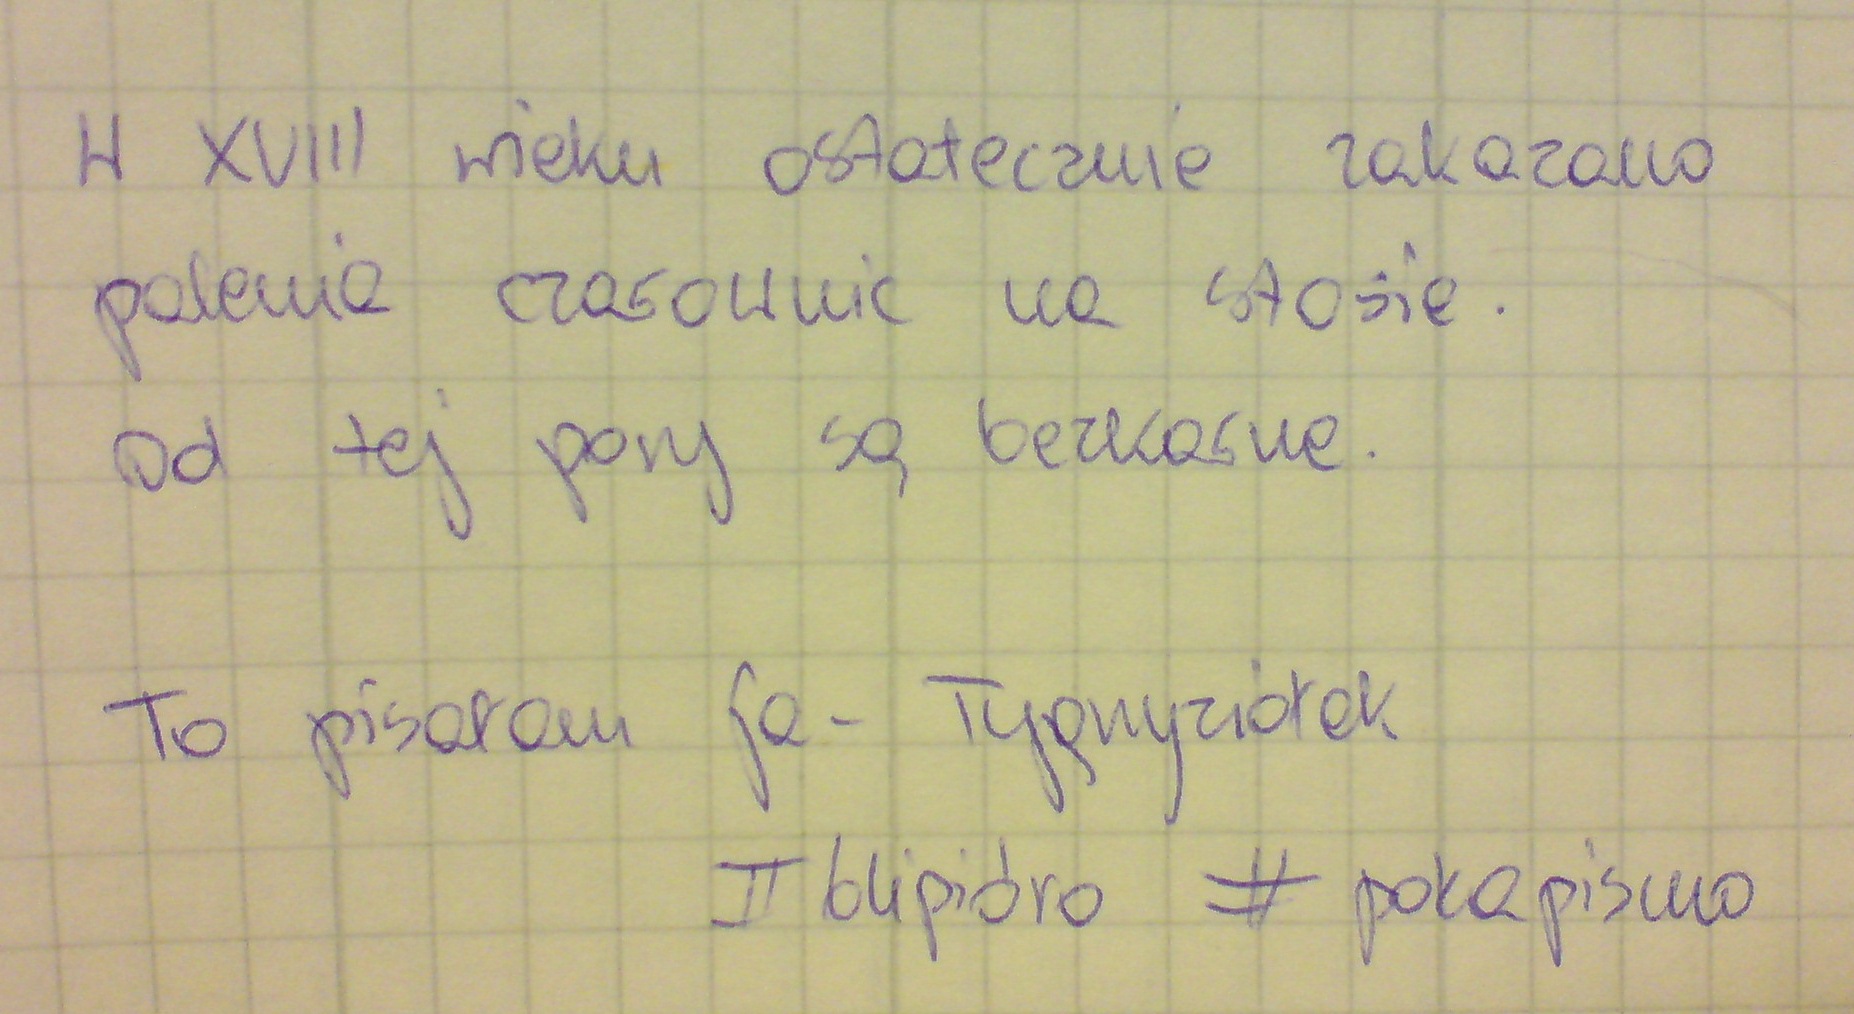 W XVIII wieku ostatecznie zakazano
palenia czarownic na stosie.
Od tej pory są bezkasne.
To pisałam ja - Tygryziołek
II blipióro #pokapismo